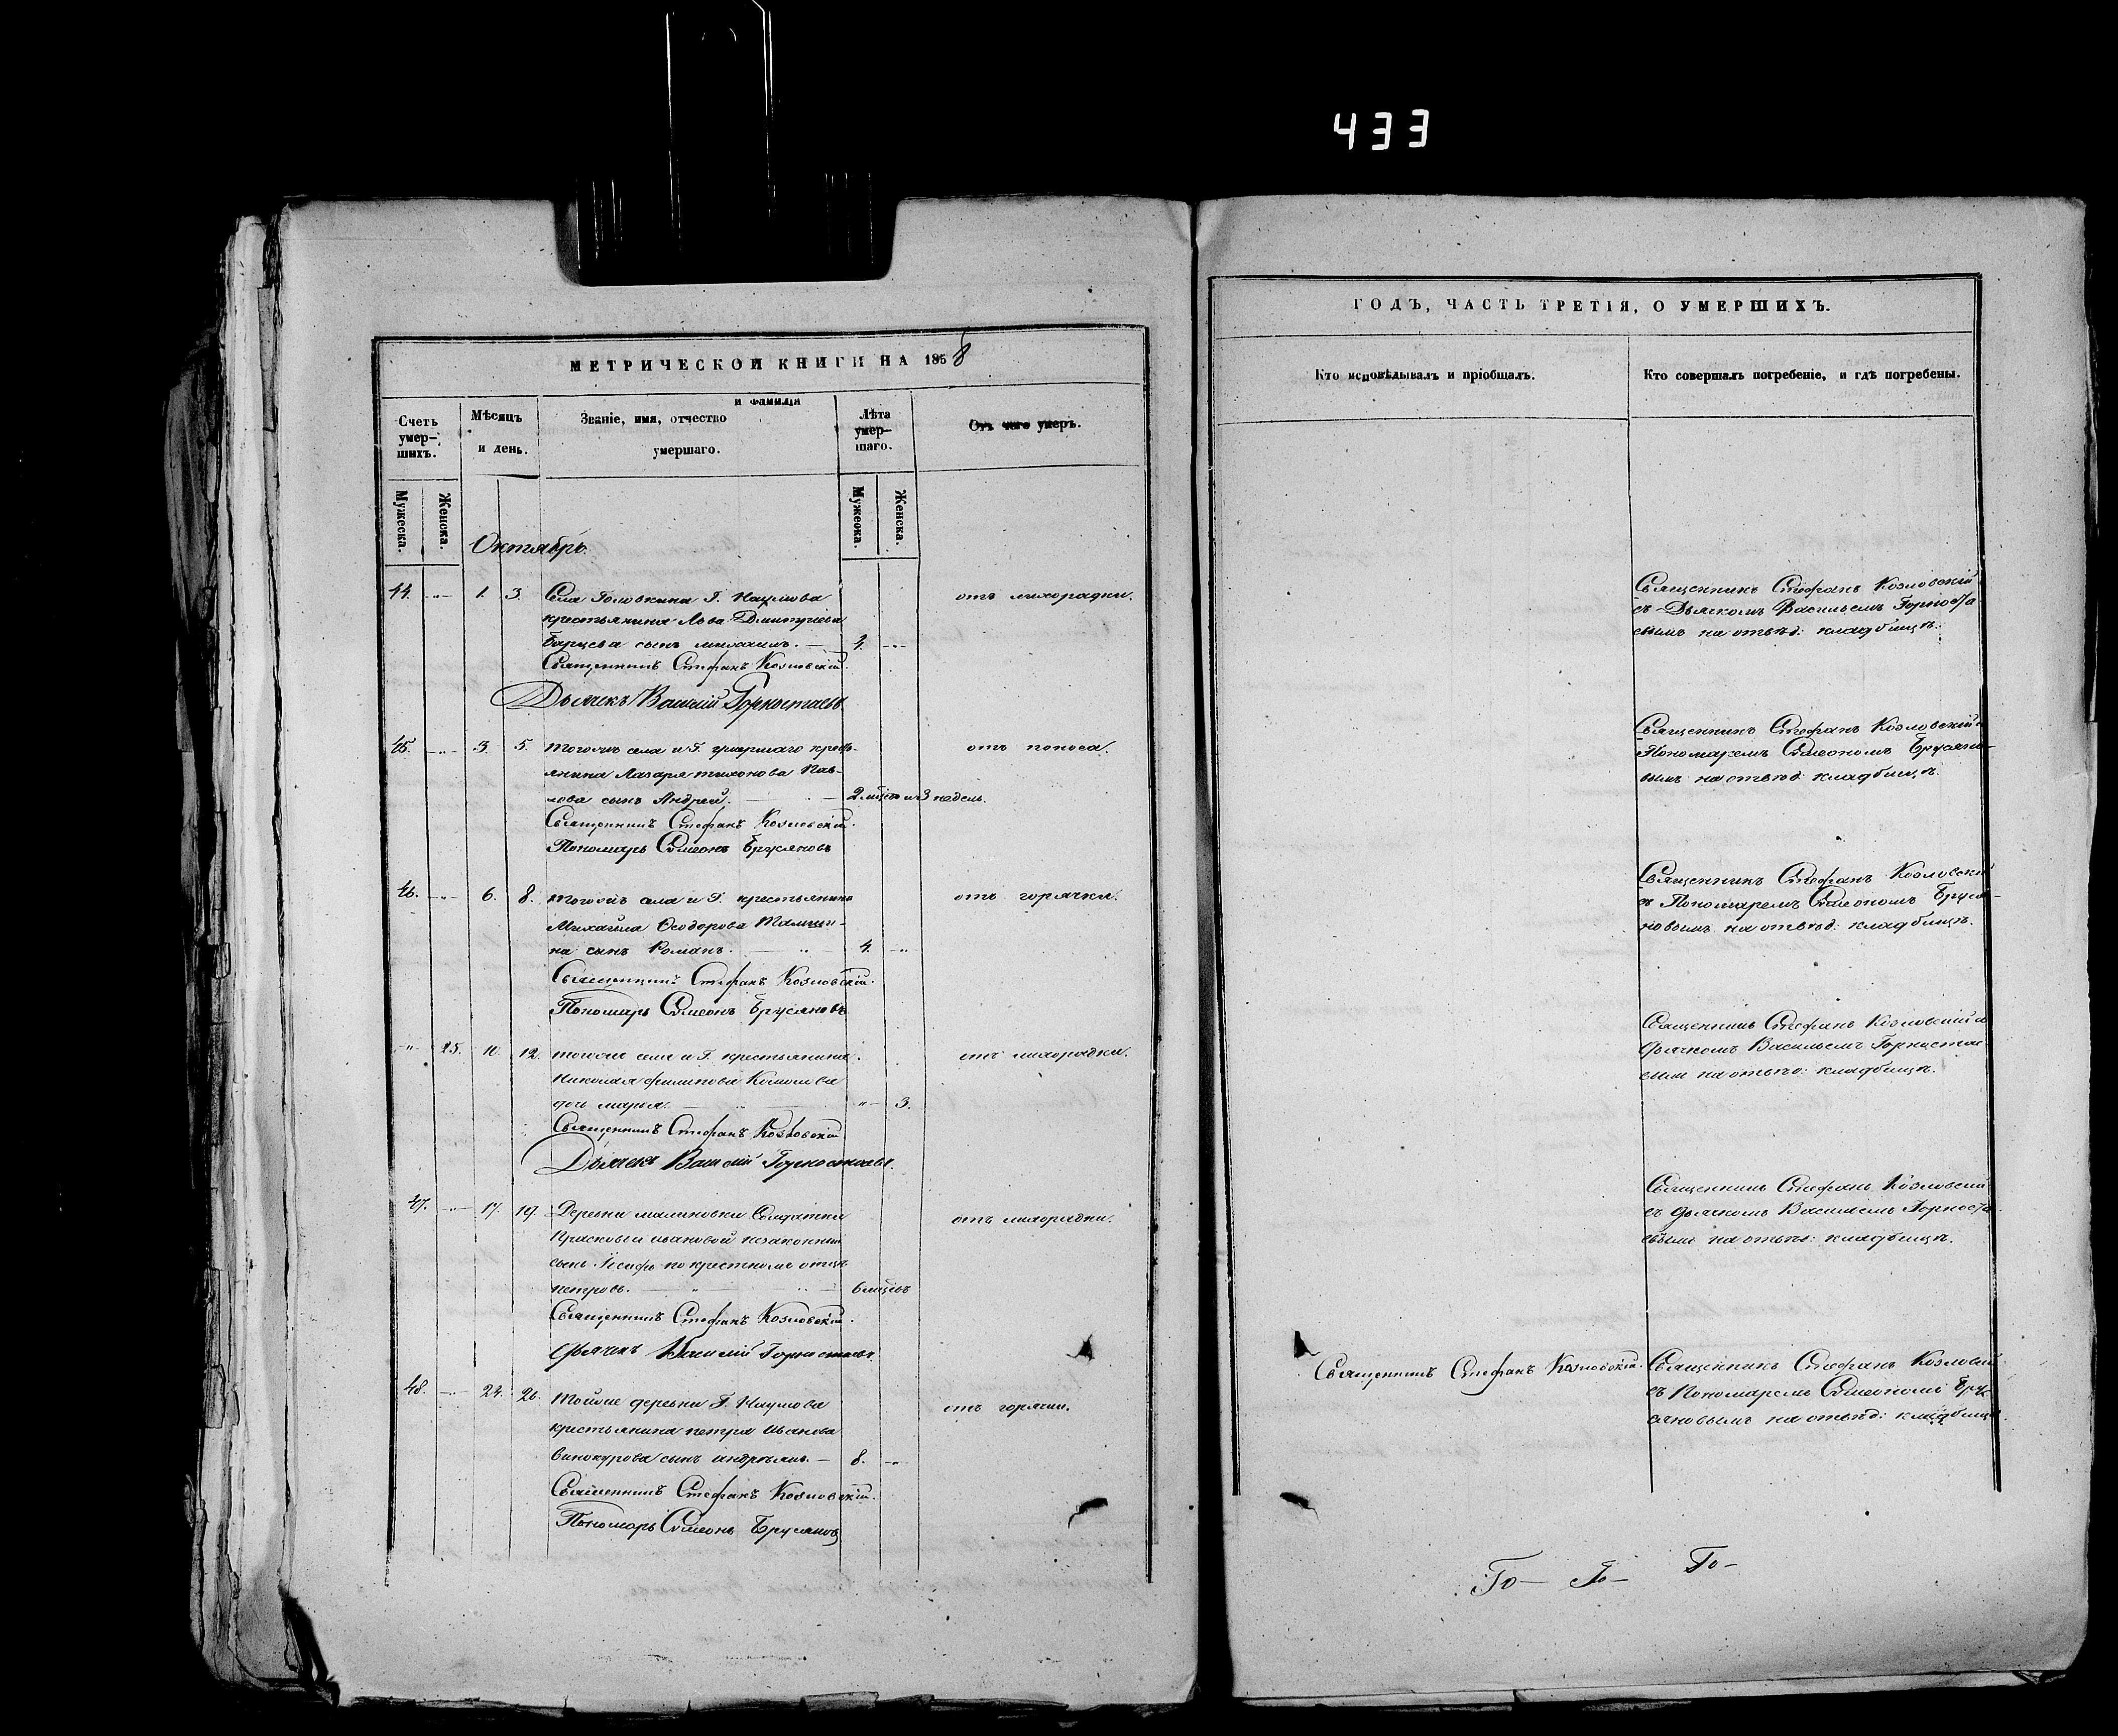 433
МЕТРИЧЕСКОЙ КНИГИ НА 1858
Счетъ умер-шихъ.
Мужеска.
Женска.
Мѣсяцъ и день.
Званіе, имя, отчество и фамилія
умершаго.
Лѣта умер-шаго.
Мужеска.
Женска.
Отъ чего умеръ.
Октябрь.
44. 1. 3. Села Головкина Г. Наумова отъ лихорадки.
крестьянина Льва Дмитріева
сынъ Михаилъ. 4.
Священникъ Стефанъ Козловскій.
Дьячекъ Василій Горностаевъ
45. 3. 5. тогожъ села и Г. умершаго кресть- отъ поноса.
янина Лазаря тихонова Пав-
лова сынъ Андрей. 2 мѣсц. и 3 недель.
Священникъ Стефанъ Козловскій.
Пономарь Симеонъ Брусяновъ
46. 6. 8. тогожъ села и Г. крестьянина отъ горячки.
Михаила Ѳеодорова
на сынъ Романъ. 4.
Священникъ Стефанъ Козловскій.
Пономарь Симеонъ Брусяновъ
25. 10. 12. тогоже села и Г. крестьянина отъ лихорадки.
Николая филипова
дочь марья. 3.
Священникъ Стефанъ Козловскій
Дьячекъ Василій Горностаевъ.
47. 17. 19. Деревни малиновки Солдатки отъ лихорадки.
Прасковьи ивановой незаконный
сынъ Іосифъ по крестномъ отцѣ
петровъ. 6 мѣсцвъ
Священникъ Стефанъ Козловскій.
дьячекъ Василій Горностаевъ
48. 24. 26. Тойже деревни Г. Наумова отъ горячки.
крестьянина петра Иванова
Винокурова сынъ 8.
Священникъ Стефанъ Козловскій.
Пономарь Симеонъ Брусяновъ
ГОДЪ, ЧАСТЬ ТРЕТІЯ, О УМЕРШИХЪ.
Кто исповѣдывалъ и пріобщалъ.
Кто совершалъ погребеніе, и гдѣ погребены.
Священникъ Стефанъ Козловскій
съ Дьячкомъ Васильемъ Горноста-
евымъ на отвѣд: кладбищѣ.
Священникъ Стефанъ Козловскій с
Пономаремъ Симеономъ Брусяно-
вымъ на отвѣд: кладбищѣ.
Священникъ Стефанъ Козловскій
съ Пономаремъ Симеономъ Бруся-
новымъ на отвѣд: кладбищѣ.
Священникъ Стефанъ Козловскій с
дьячкомъ Васильемъ Горностае
вымъ на отвѣд: кладбищѣ.
Священникъ Стефанъ Козловскій
съ дьячкомъ Васильемъ Горноста-
евымъ на отвѣд: кладбищѣ.
Священникъ Стефанъ Козловскій.
Священникъ Стефанъ Козловскій
съ Пономаремъ Симеономъ Бру-
сяновымъ на отвѣд: кладбищѣ.
Го- Го- Го-